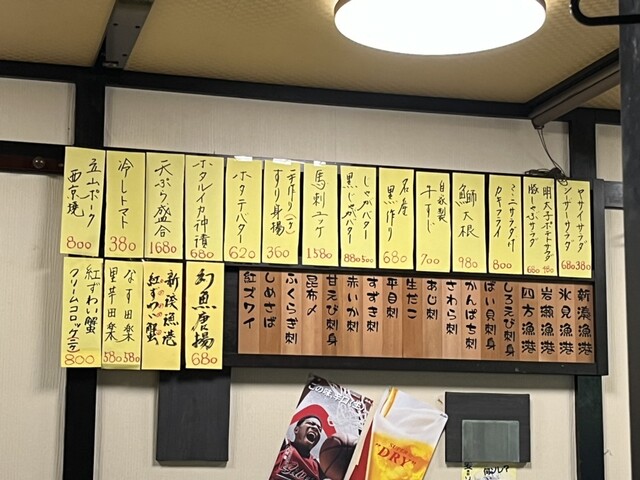 ヤサイサラダ
シーザーサラダ
680 380
明太子ポテトサラダ
豚しゃぶサラダ
680 480
ミニサラダ付
カキフライ
800
鰤大根
980
自家製
牛すじ
700
名産
黒作り
680
じゃがバター
黒じゃがバター
380 500
馬刺ユッケ
1580
手作り(す)
すり身揚
360
ホタテバター
620
ホタルイカ沖漬
680
天ぷら盛合
1680
冷しトマト
380
立山ポーク
西京焼
800
新湊漁港
氷見漁港
岩瀬漁港
四方漁港
しろえび刺身
ばい貝刺身
かんぱち刺
さわら刺
あじ刺
生だこ
平目刺
すずき刺
赤いか刺
甘えび刺身
昆布〆
ふくらぎ刺
しめさば
紅ズワイ
幻魚唐揚
680
新湊漁港
紅ずわい蟹
なす田楽
里芋田楽
580 380
紅ずわい蟹
クリームコロッケ
800
この味、辛口
"DRY"